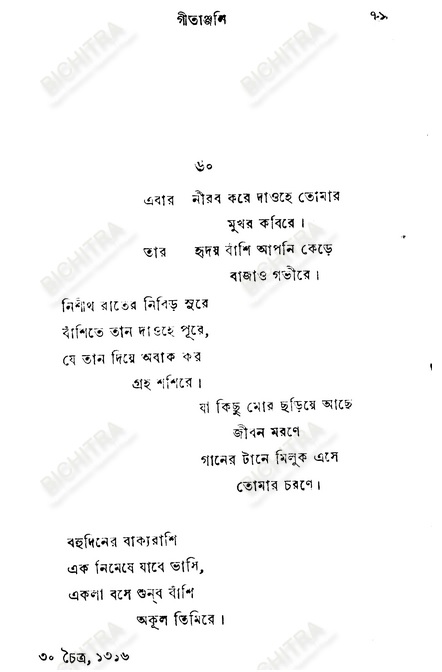 গীতাঞ্জলি ৭১
৬০
এবার নীরব করে দাওহে তোমার
মুখর কবিরে।
তার হৃদয় বাঁশি আপনি কেড়ে
বাজাও গভীরে।
নিশীথ রাতের নিবিড় সুরে
বাঁশিতে তান দাওহে পূরে,
যে তান দিয়ে অবাক কর
গ্রহ শশিরে।
যা কিছু মোর ছড়িয়ে আছে
জীবন মরণে
গানের টানে মিলুক এসে
তোমার চরণে।
বহুদিনের বাক্যরাশি
এক নিমেষে যাবে ভাসি,
একলা বসে শুন্‌ব বাঁশি
অকূল তিমিরে।
৩০ চৈত্র, ১৩১৬
BICHITRA
BICHITRA
BICHITRA
BICHITRA
BICHITRA
BICHITRA
BICHITRA
BICHITRA